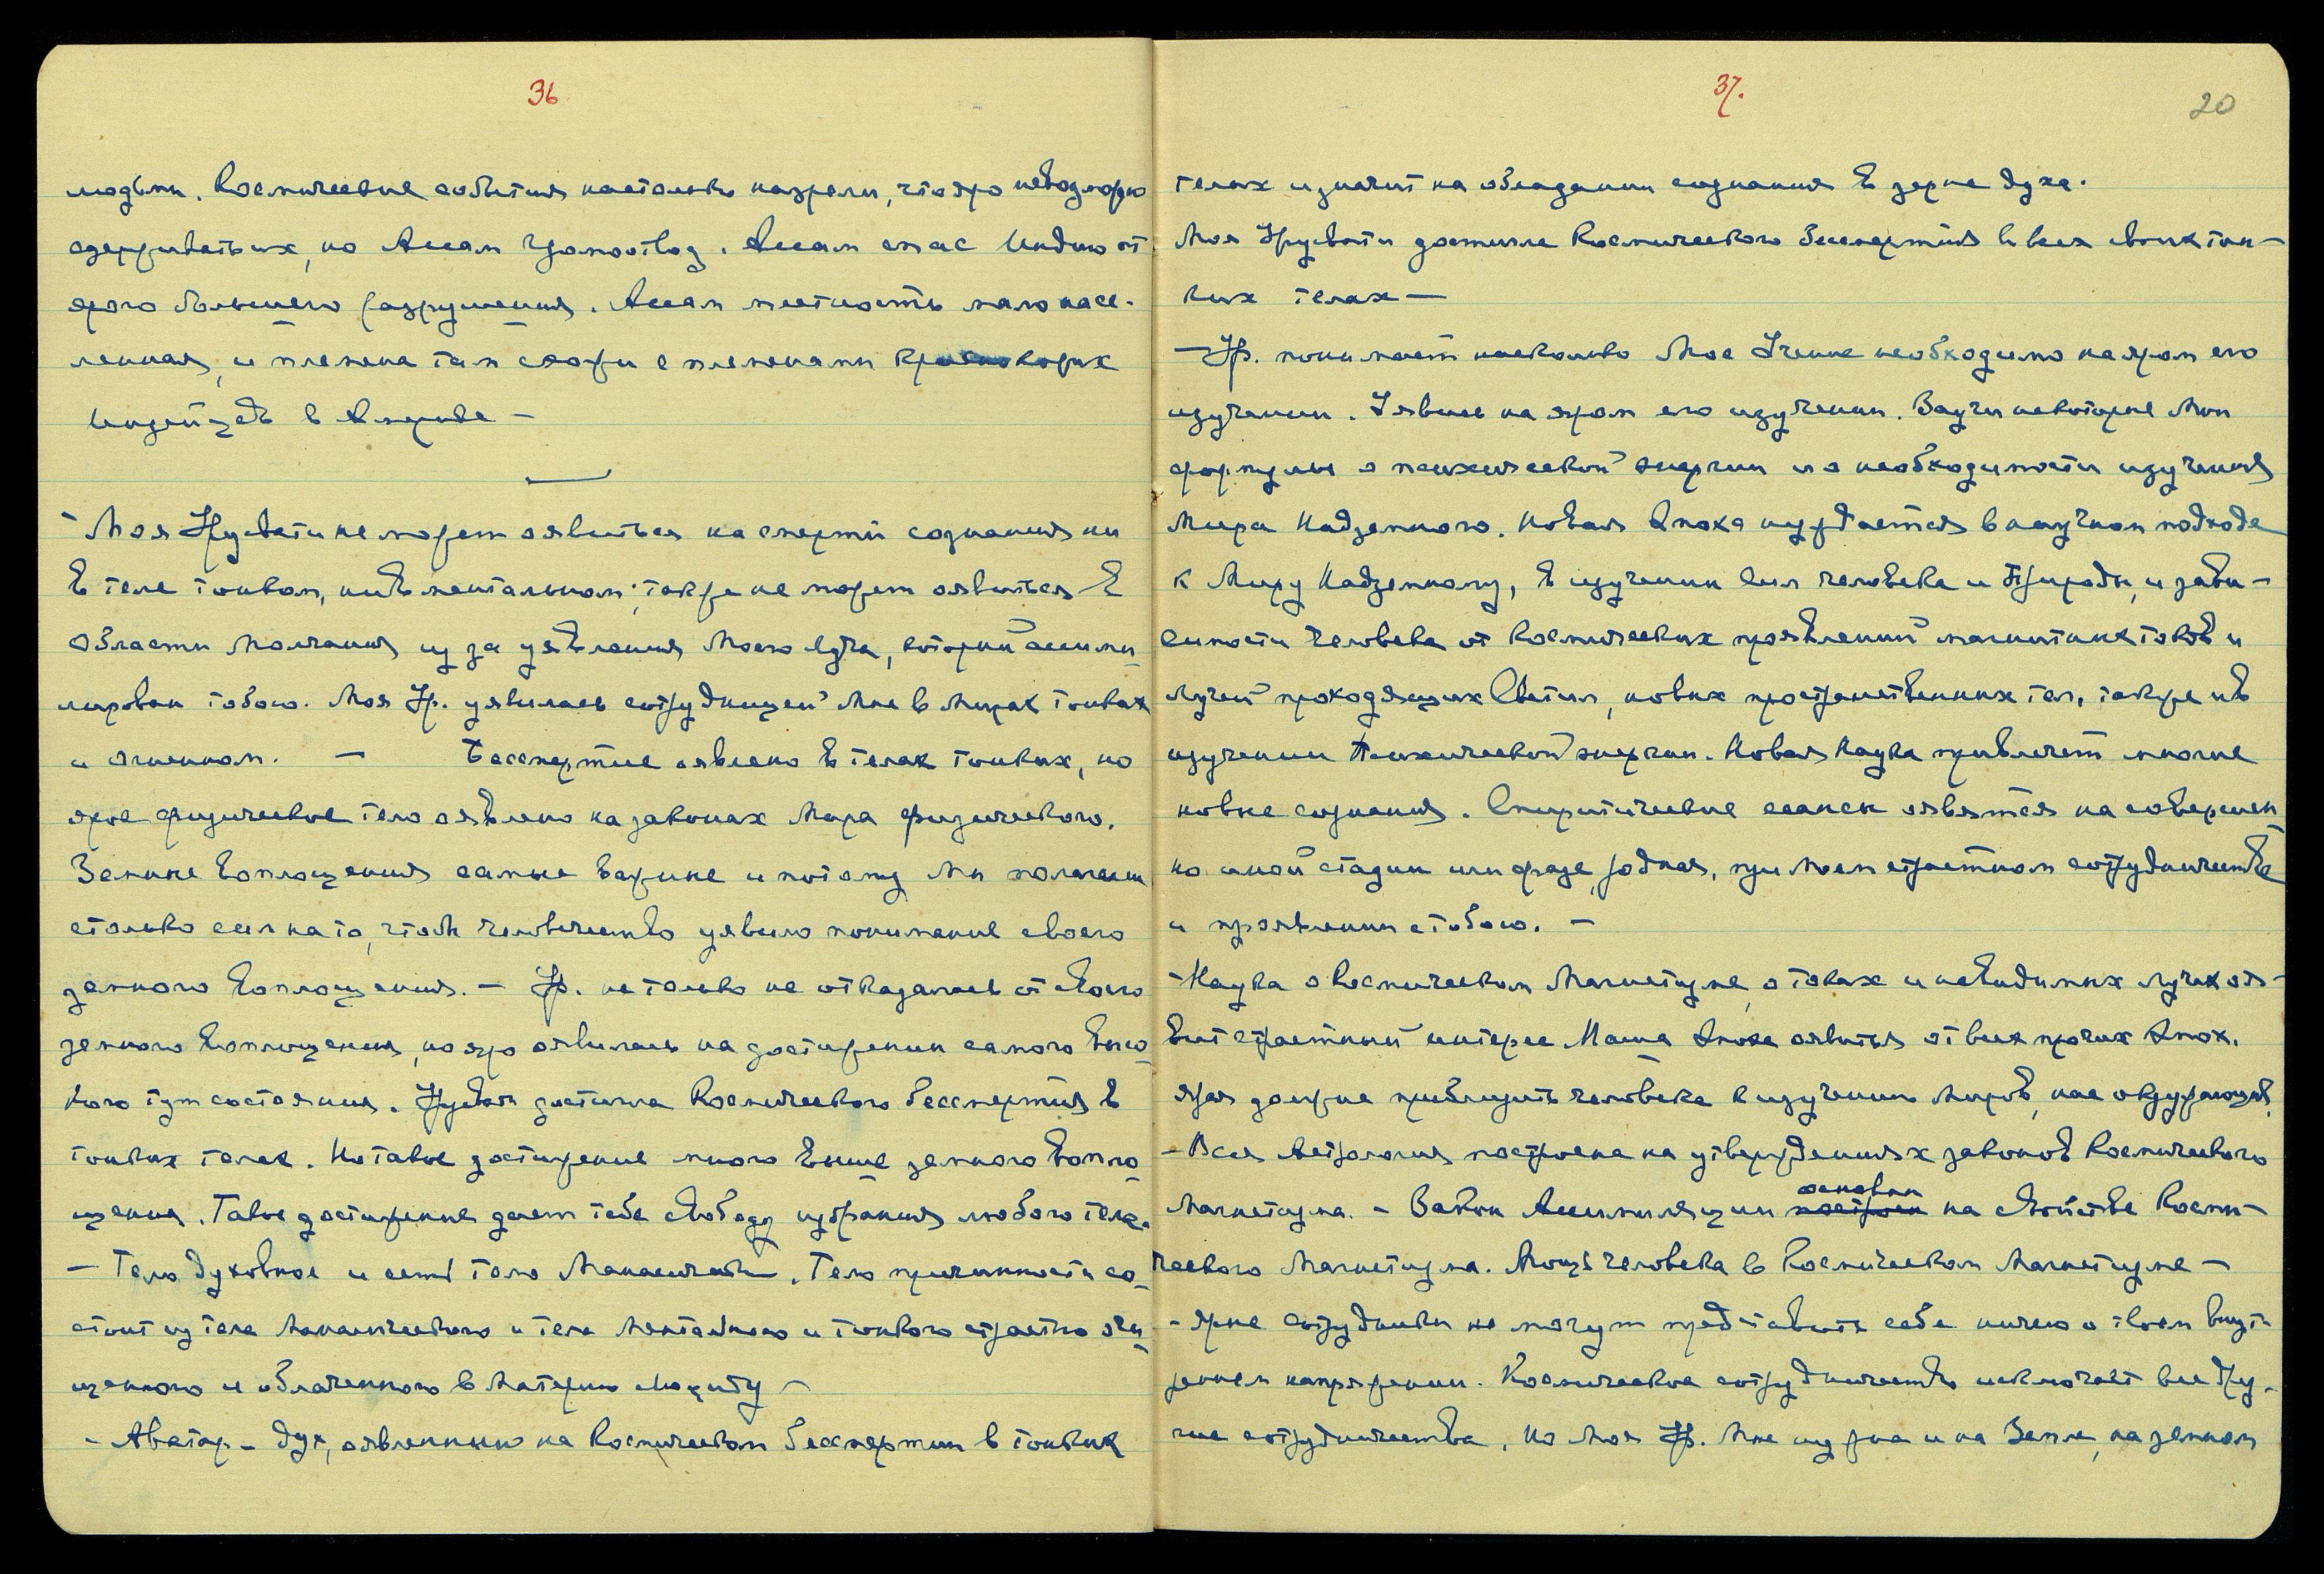 36
людьми. Космические события настолько назрели, что яро невозможно
сдерживать их, но Ассам громоотвод. Ассам спас Индию от
ярого большего разрушения. Ассам местность мало насе-
ленная, и племена там схожи с племенами краснокожих
Индейцев в Америке —
— Моя Урусвати не может явиться на смерти сознания ни
в теле тонком, ни в ментальном; также не может оявиться в
области молчания из за уявления Моего Луча, который ассими-
лирован тобою. Моя Ур. уявилась сотрудницей Мне в Мирах тонких
и огненном. — Бессмертие оявлено в телах тонких, но
ярое физическое тело оявлено на законах Мира физического.
Земные воплощения самые важные и потому Мы полагаем
столько сил на то, чтобы человечество уявило понимание своего
земного воплощения. — Ур. не только не отказалась от своего
земного воплощения, но яро оявилась на достижении самого высо-
кого тут состояния. Урусвати достигла Космического бессмертия в
тонких телах. Но такое достижение много выше земного вопло-
щения. Такое достижение дает тебе свободу избрания любого тела.
— Тело духовное и есть тело Манасическое. Тело причинности со-
стоит из тела Манасического и тела Ментального и тонкого страстно очи-
щенного и облаченного в Материю Люциду —
— Аватар — дух, оявленный на Космическом бессмертии в тонких
37.
20
телах и значит на обладании сознания в зерне духа.
Моя Урусвати достигла Космического бессмертия в всех своих тон-
ких телах —
— Ур. понимает насколько Мое Учение необходимо на яром его
изучении. Уявись на яром его изучении. Заучи некоторые Мои
формулы о психической энергии и о необходимости изучения
Мира Надземного. Новая Эпоха нуждается в научном подходе
к Миру Надземному, в изучении сил человека и Природы, и зави-
симости человека от Космических проявлений магнитных токов и
лучей проходящих Светил, новых пространственных тел, также и в
изучении Психической энергии. Новая Наука привлечет многие
новые сознания. Спиритические сеансы оявятся на совершен-
но иной стадии или фазе, родная, при Моем страстном сотрудничестве
и проявлении с тобою. —
— Наука о Космическом Магнетизме, о токах и невидимых лучах оя-
вит страстный интерес. Наша Эпоха оявится от всех прочих Эпох.
Ярая должна приблизить человека к изучению Миров, нас окружающих.
— Вся Астрология построена на утверждениях законов Космического
Магнетизма. — Закон Ассимиляции построен основан на свойстве Косми-
ческого Магнетизма. Мощь человека в Космическом Магнетизме —
— Ярые сотрудники не могут представить себе ничего о твоем внут-
реннем напряжении. Космическое сотрудничество исключает все дру-
гие сотрудничества, но Моя Ур. Мне нужна и на Земле, на земном